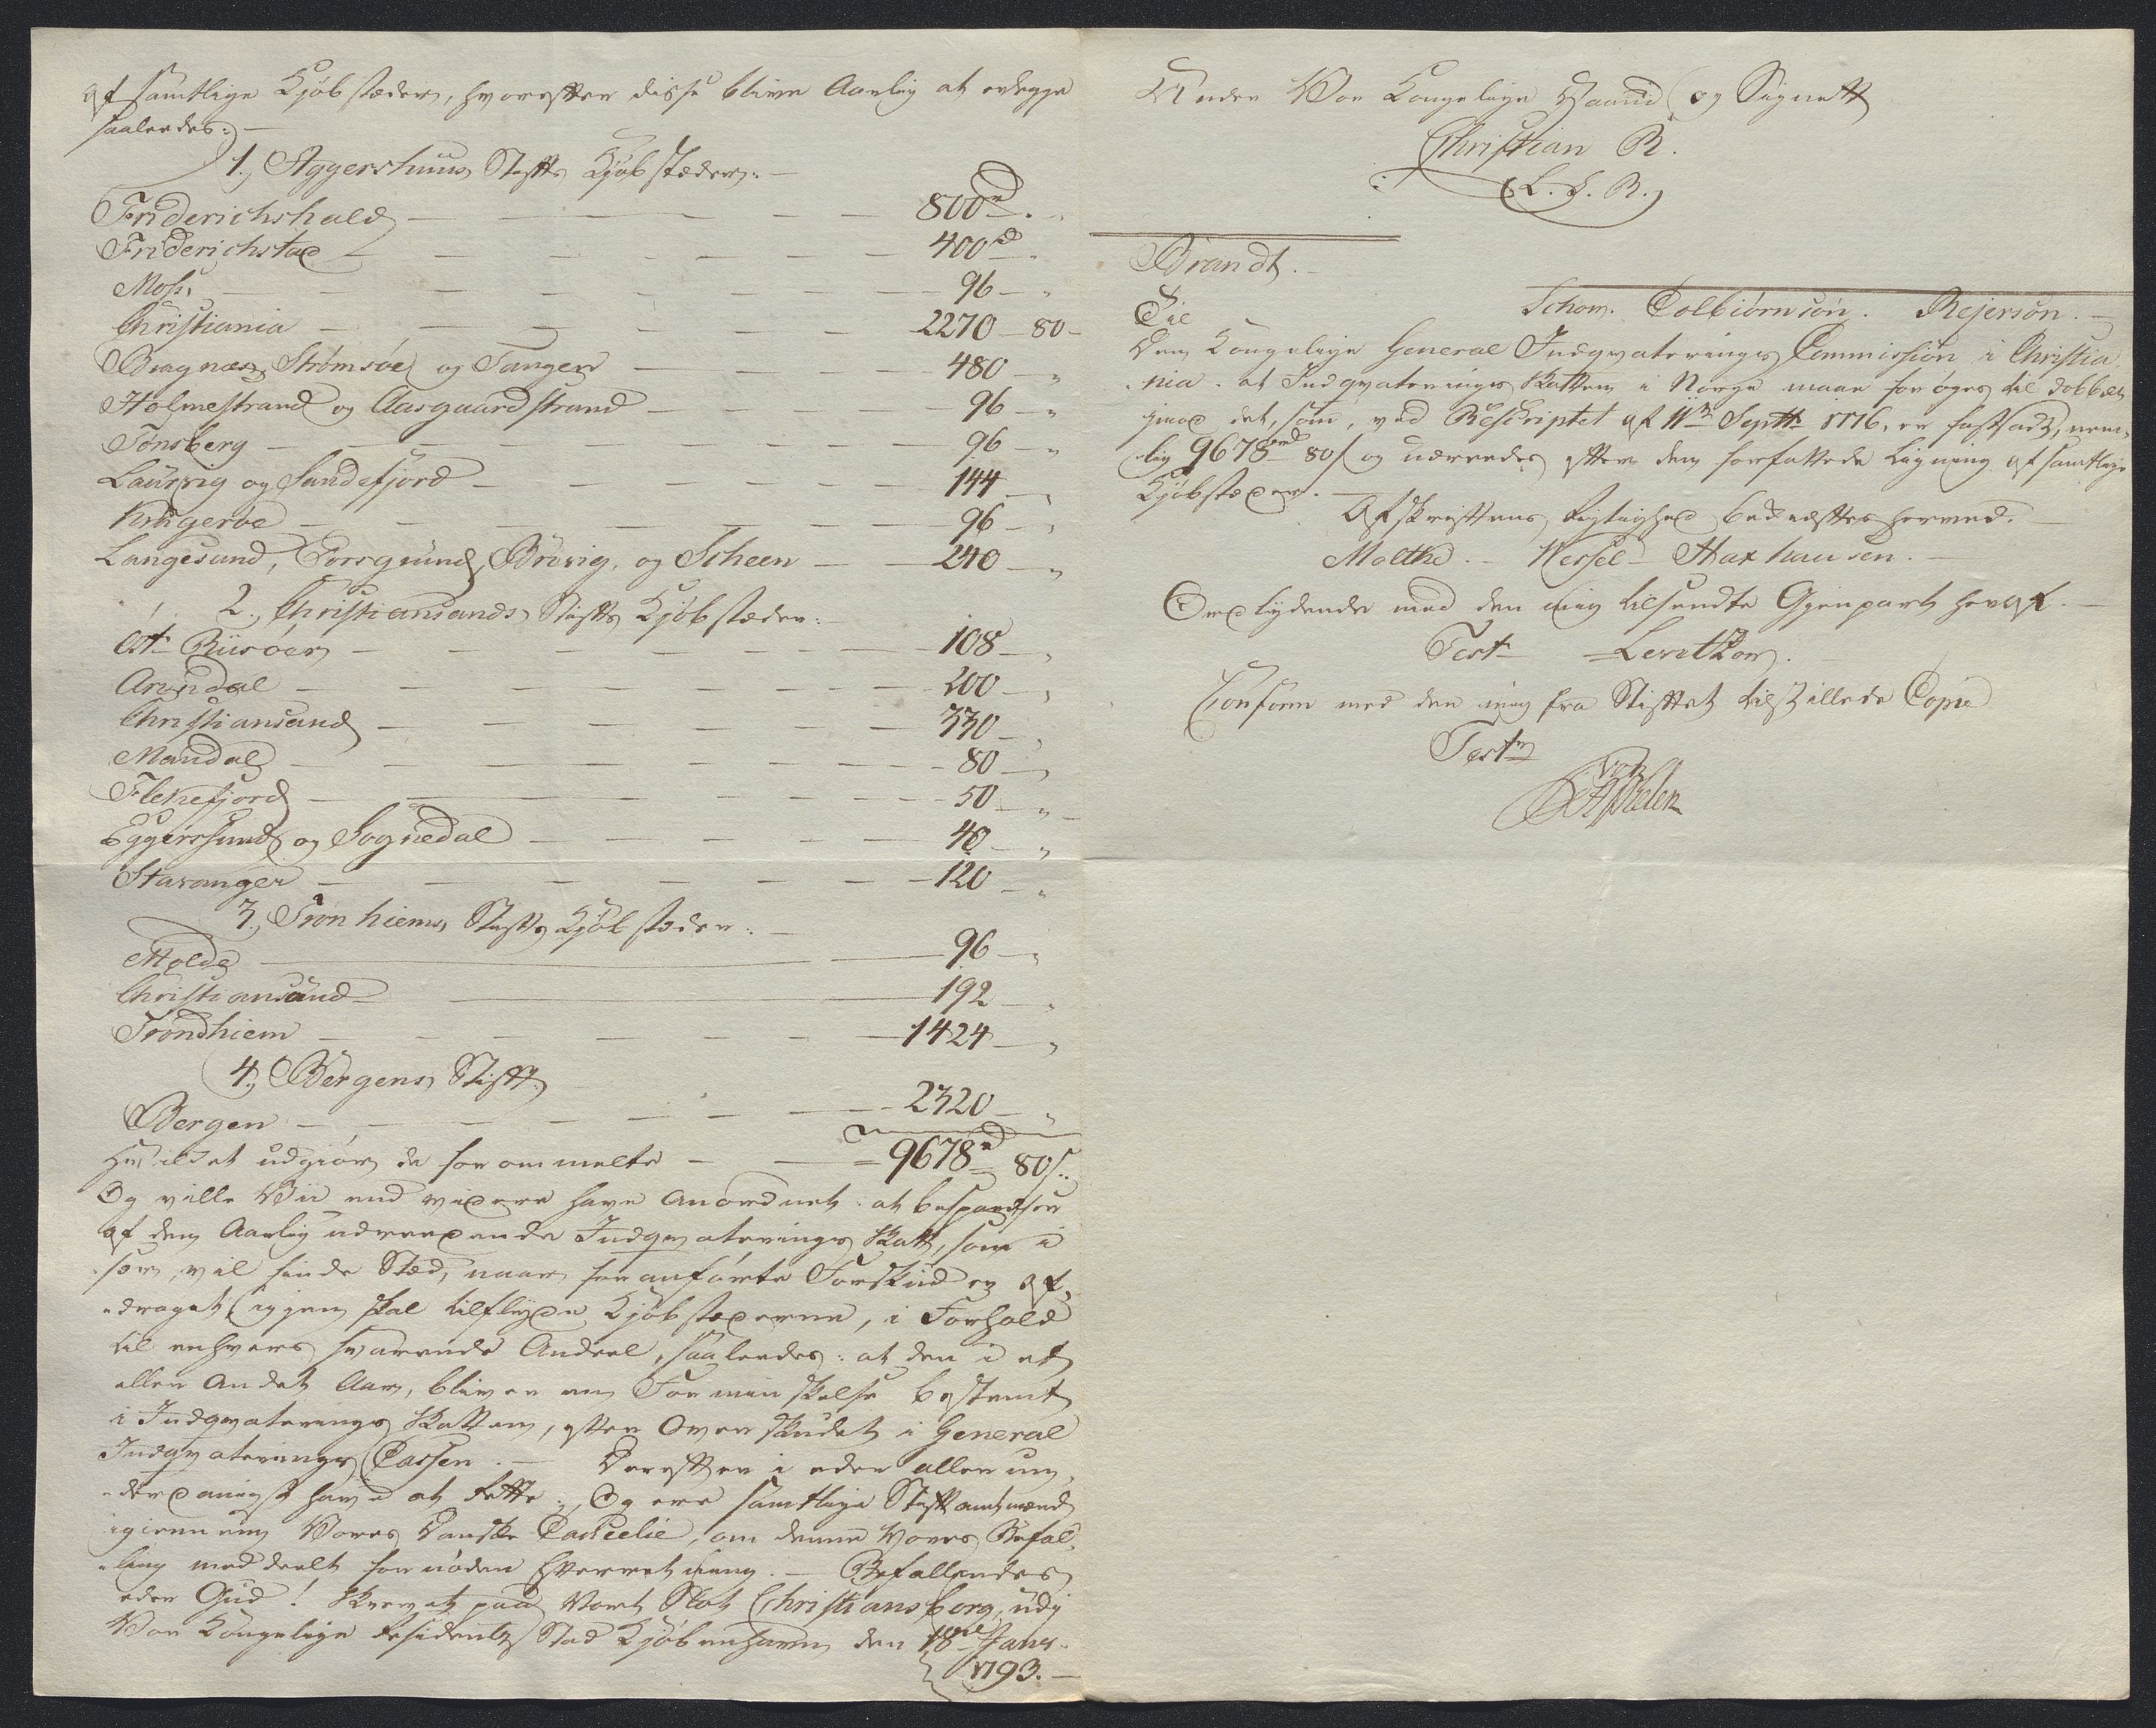 af samtlige Kjøbstæder, hvorefter disse blive Aarlig at erlegge
saaledes: —
1., Aggershuus Stifts Kjøbstæder: —
Friderichshald — — — — — 800rd „
Friderichstad — — — — — 400rd „
Moss, — — — — — 96 — „
Christiania — — — — — 2270 — 80 —
Bragnæs, Strømsøe og Tangen — — — — 480 — „
Holmestrand og Aasgaardstrand — — — — 96 — „
Tønsberg — — — — — 96 — „
Laurvig og Sandefjord — — — — — 144 — „
Kragerøe — — — — — 96 — „
Langesund, Porsgrund, Brevig, og Scheen — — 240 — „
2., Christiansands Stifts Kjøbstæder: —
Ost Riisøer — — — — — 108 — „
Arendal — — — — — 200 — „
Christiansand — — — — — 330 — „
Mandal — — — — — 80 — „
Flekefjord — — — — — 50 — „
Eggersund og Sognedal — — — — 40 — „
Stavanger — — — — — 120 — „
3., Tronhiems Stifts Kjøbstæder: —
Molde — — 96 — „
Christiansund — — 192 — „
Trondhiem — — — — — 1424 — „
4., Bergens Stift
Bergen — — — — — 2320 — „
Hvilket udgiør de forommelte — — 9678rd 80s:
Og ville Vii end videre have anordnet: at besparelsen
af den Aarlig udreedende Indqvaterings Skatt, som i
sær vil finde Sted, naar foranførte Forskud er af„
„draget igjen skal tilflyde Kjøbstæderne, i Forhold
til enhvers svarende Andeel, saaledes: at der i et
eller andet Aar, bliver en Forminskelse bestemt
i Indqvaterings Skatten, efter Overskudet i General
Indqvaterings Cassen. — Derefter i eder allerun„
„derdanigst have at rette; Og ere samtlige Stiftamtmænd
igiennem Vores Danske Cancelie, om denne Vores Befal„
„ling meddeelt fornøden Efterretning. — Befallendes
eder Gud! Skrevet paa Vort Slot Christiansborg, udi
Vor Kongelige Residentz Stad Kjøbenhavn den 18de Janr.
1793. —
Under Vor Kongelige Haand og Signett
Christian R.
(L. S. R.)
Brandt. —
Schow. Colbiørnsøn. Rejersøn. —
Til
Den Kongelige General Indqvaterings Commission i Christia„
„nia. at Indqvaterings Skatten i Norge maae forøges til dobbelt
imod det, som, ved Rescriptet af 11te Septbr 1776, er fastsadt, nem„
„lig 9678rd 80s og udreedes efter den forfattede Ligning af samtlige
Kjøbstæder. —
Afskriftens Rigtighed bekræftes herved. —
Moltke. — Wessel — Haxthausen. —
Ordlydende med den mig tilsendte Gjenpart heraf. —
Test: Levetzow. —
Conform med den mig fra Stiftet tilstillede Copie
Test: